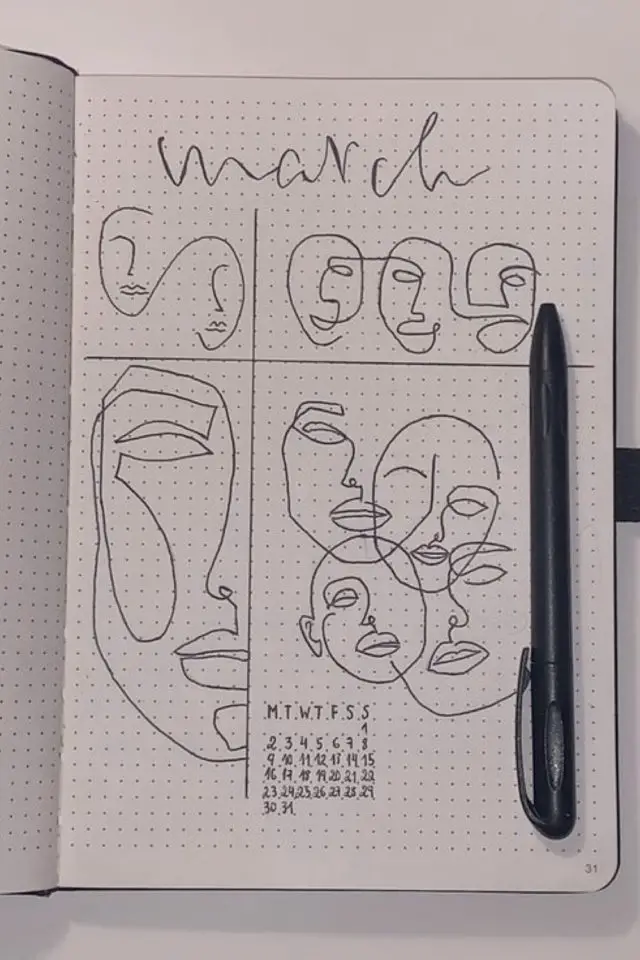 march
M.T.W.T.F.S.S
1
2.3.4.5.6.7.8
9.10.11.12.13.14.15
16.17.18.19.20.21.22
23.24.25.26.27.28.29
30.31.
31